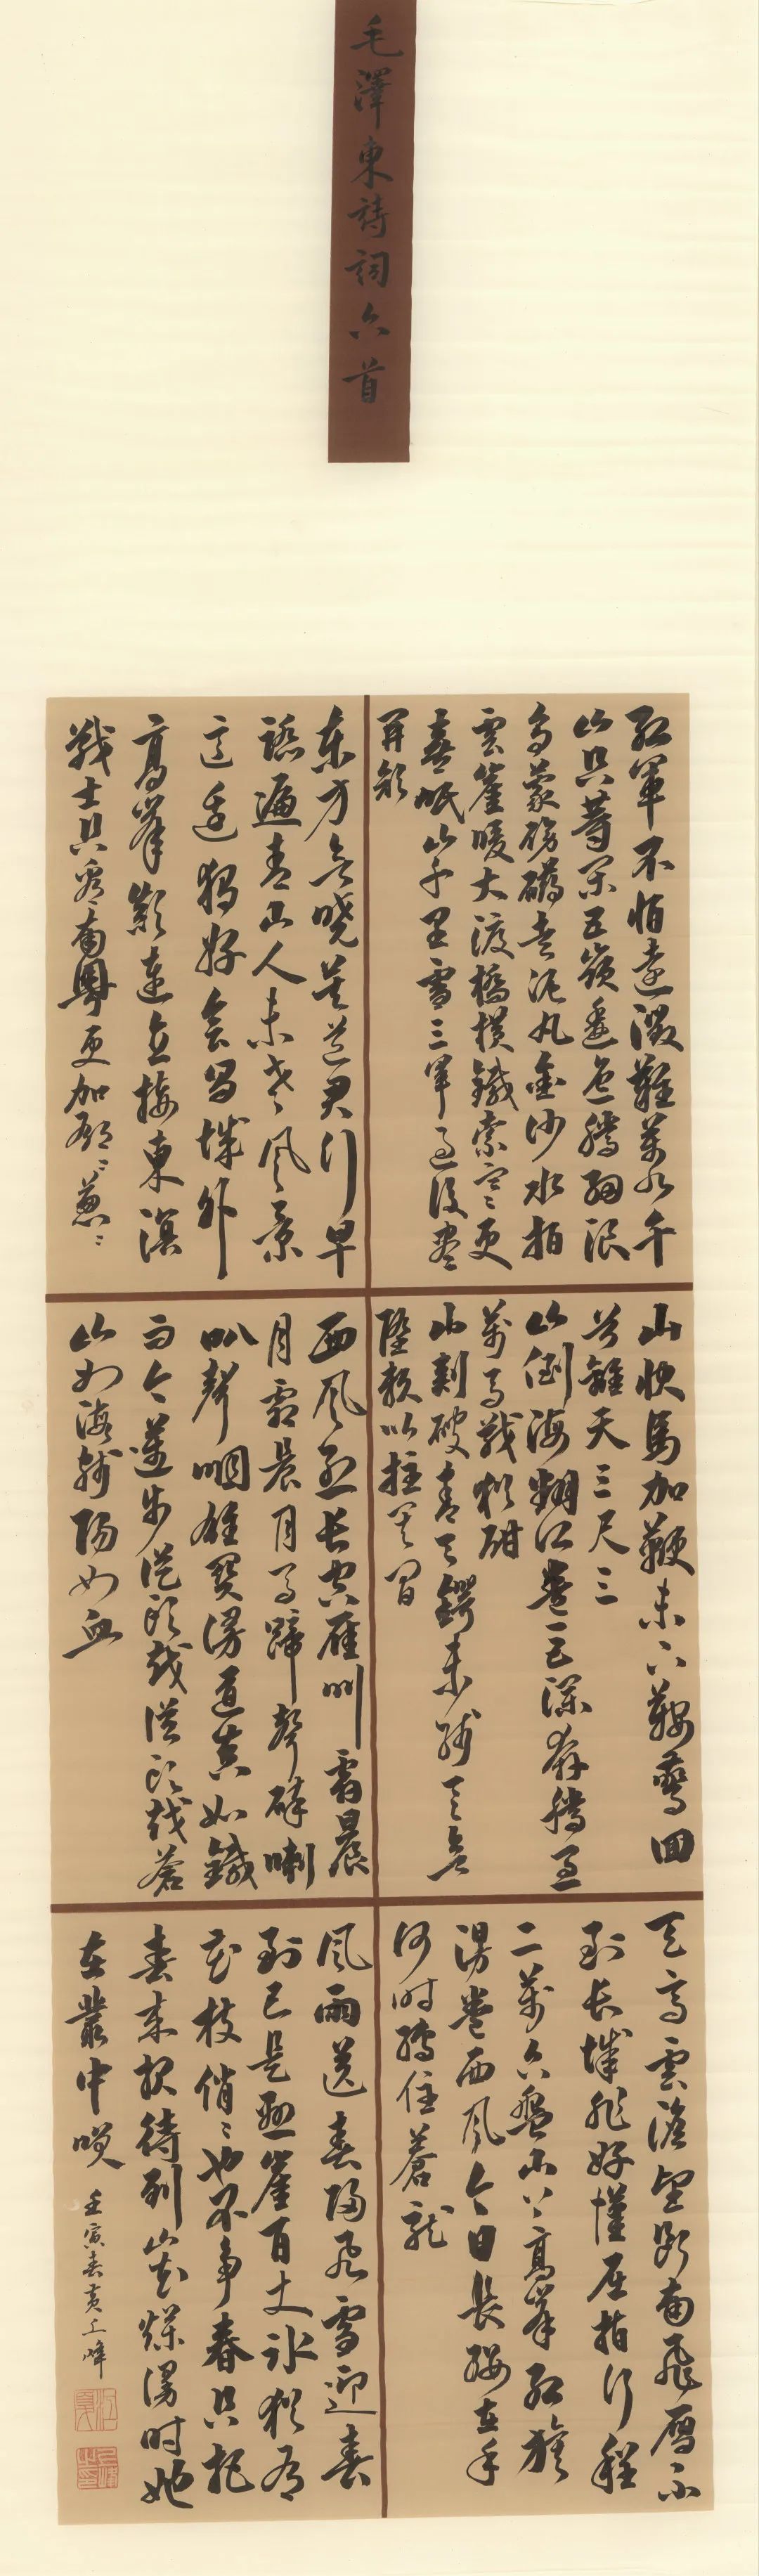 毛澤東詩詞六首
紅軍不怕遠征難萬水千
山只等閑五嶺逶迤騰細浪
烏蒙磅礴走泥丸金沙水拍
雲崖暖大渡橋橫鐵索寒更
喜岷山千里雪三軍過後盡
開顏
东方欲曉莫道君行早
踏遍青山人未老風景
這邊獨好會昌城外
高峯顛連直接東溟
戰士指看南粵更加郁〻蔥〻
山快馬加鞭未下鞍驚回
首離天三尺三
山倒海翻江卷巨瀾奔騰急
萬馬戰猶酣
山刺破青天鍔未殘天欲
墮賴以拄其間
西風烈長空雁叫霜晨
月霜晨月馬蹄聲碎喇
叭聲咽雄關漫道真如鐵
而今邁步從頭越從頭越蒼
山如海殘陽如血
天高雲淡望斷南飛雁不
到長城非好漢屈指行程
二萬六盤山上高峯紅旗
漫卷西風今日長纓在手
何時縛住蒼龍
風雨送春歸飛雪迎春
到已是懸崖百丈冰猶有
花枝俏〻也不爭春只把
春來報待到山花爛漫時她
在叢中笑
壬寅春黃峰